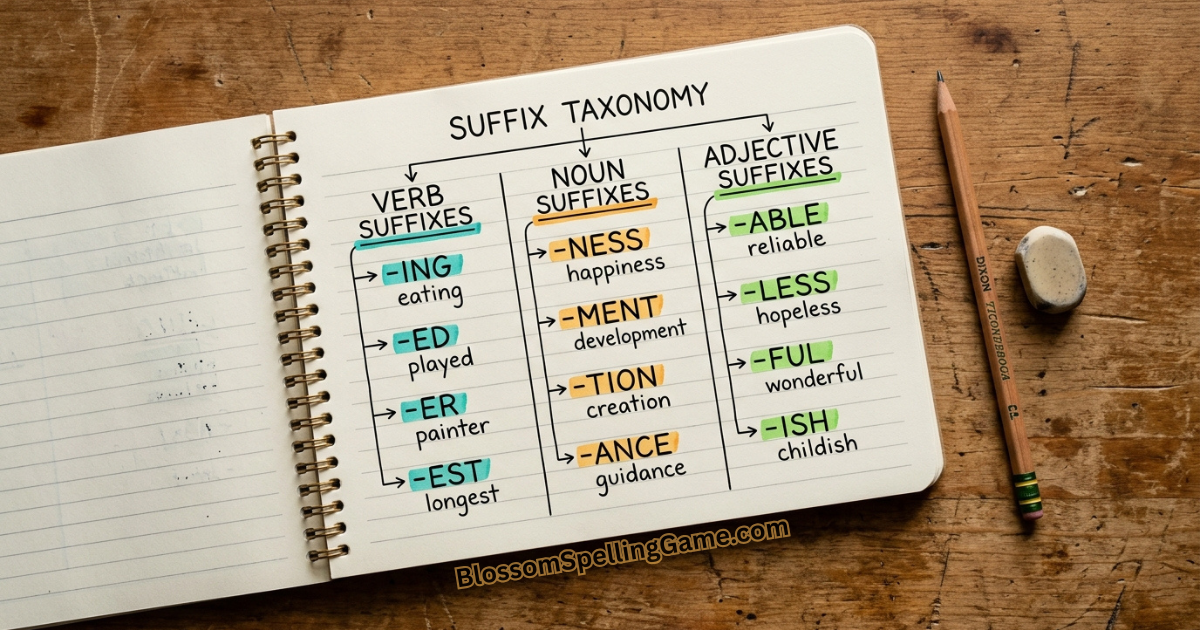 SUFFIX TAXONOMY
VERB
SUFFIXES
-ING
eating
-ED
played
-ER
painter
-EST
longest
NOUN
SUFFIXES
-NESS
happiness
-MENT
development
-TION
creation
-ANCE
guidance
ADJECTIVE
SUFFIXES
-ABLE
reliable
-LESS
hopeless
-FUL
wonderful
-ISH
childish
DIXON
BlossomSpellingGame.com